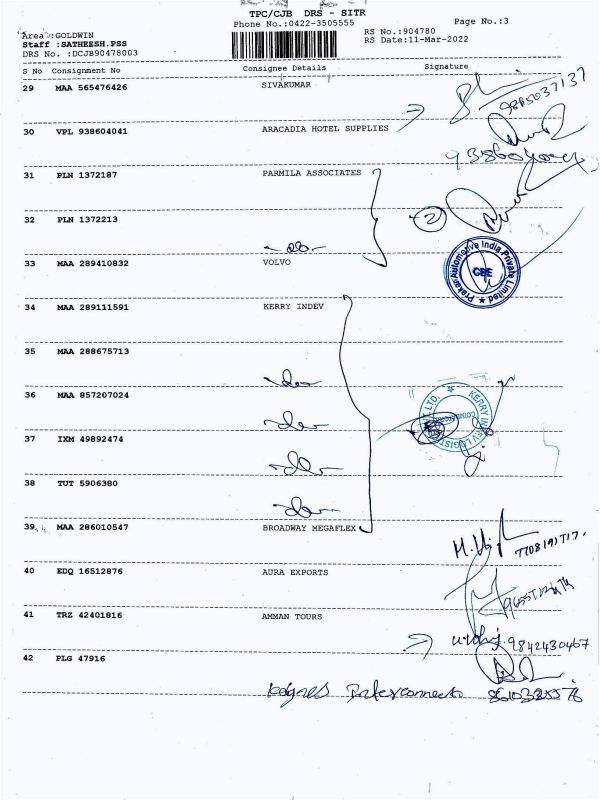 TPC/CJB DRS - SITR
Phone No.:0422-3505555
Page No.:3
Area :GOLDWIN
RS No.:904780
Staff :SATHEESH.PSS
RS Date:11-Mar-2022
DRS No. :DCJB90478003
S No Consignment No Consignee Details Signature
29 MAA 565476426 SIVAKUMAR
9865037137
30 VPL 938604041 ARACADIA HOTEL SUPPLIES
31 PLN 1372187 PARMILA ASSOCIATES
32 PLN 1372213
2
33 MAA 289410832 VOLVO
Automotive India Private Limited
CBE
34 MAA 289111591 KERRY INDEV
35 MAA 288675713
36 MAA 857207024
KERRY INDEV LOGISTICS PVT LTD.
37 IXM 49892474
38 TUT 5906380
39 MAA 286010547 BROADWAY MEGAFLEX
40 EDQ 16512876 AURA EXPORTS
41 TRZ 42401816 AMMAN TOURS
9842430467
42 PLG 47916
Interconnects